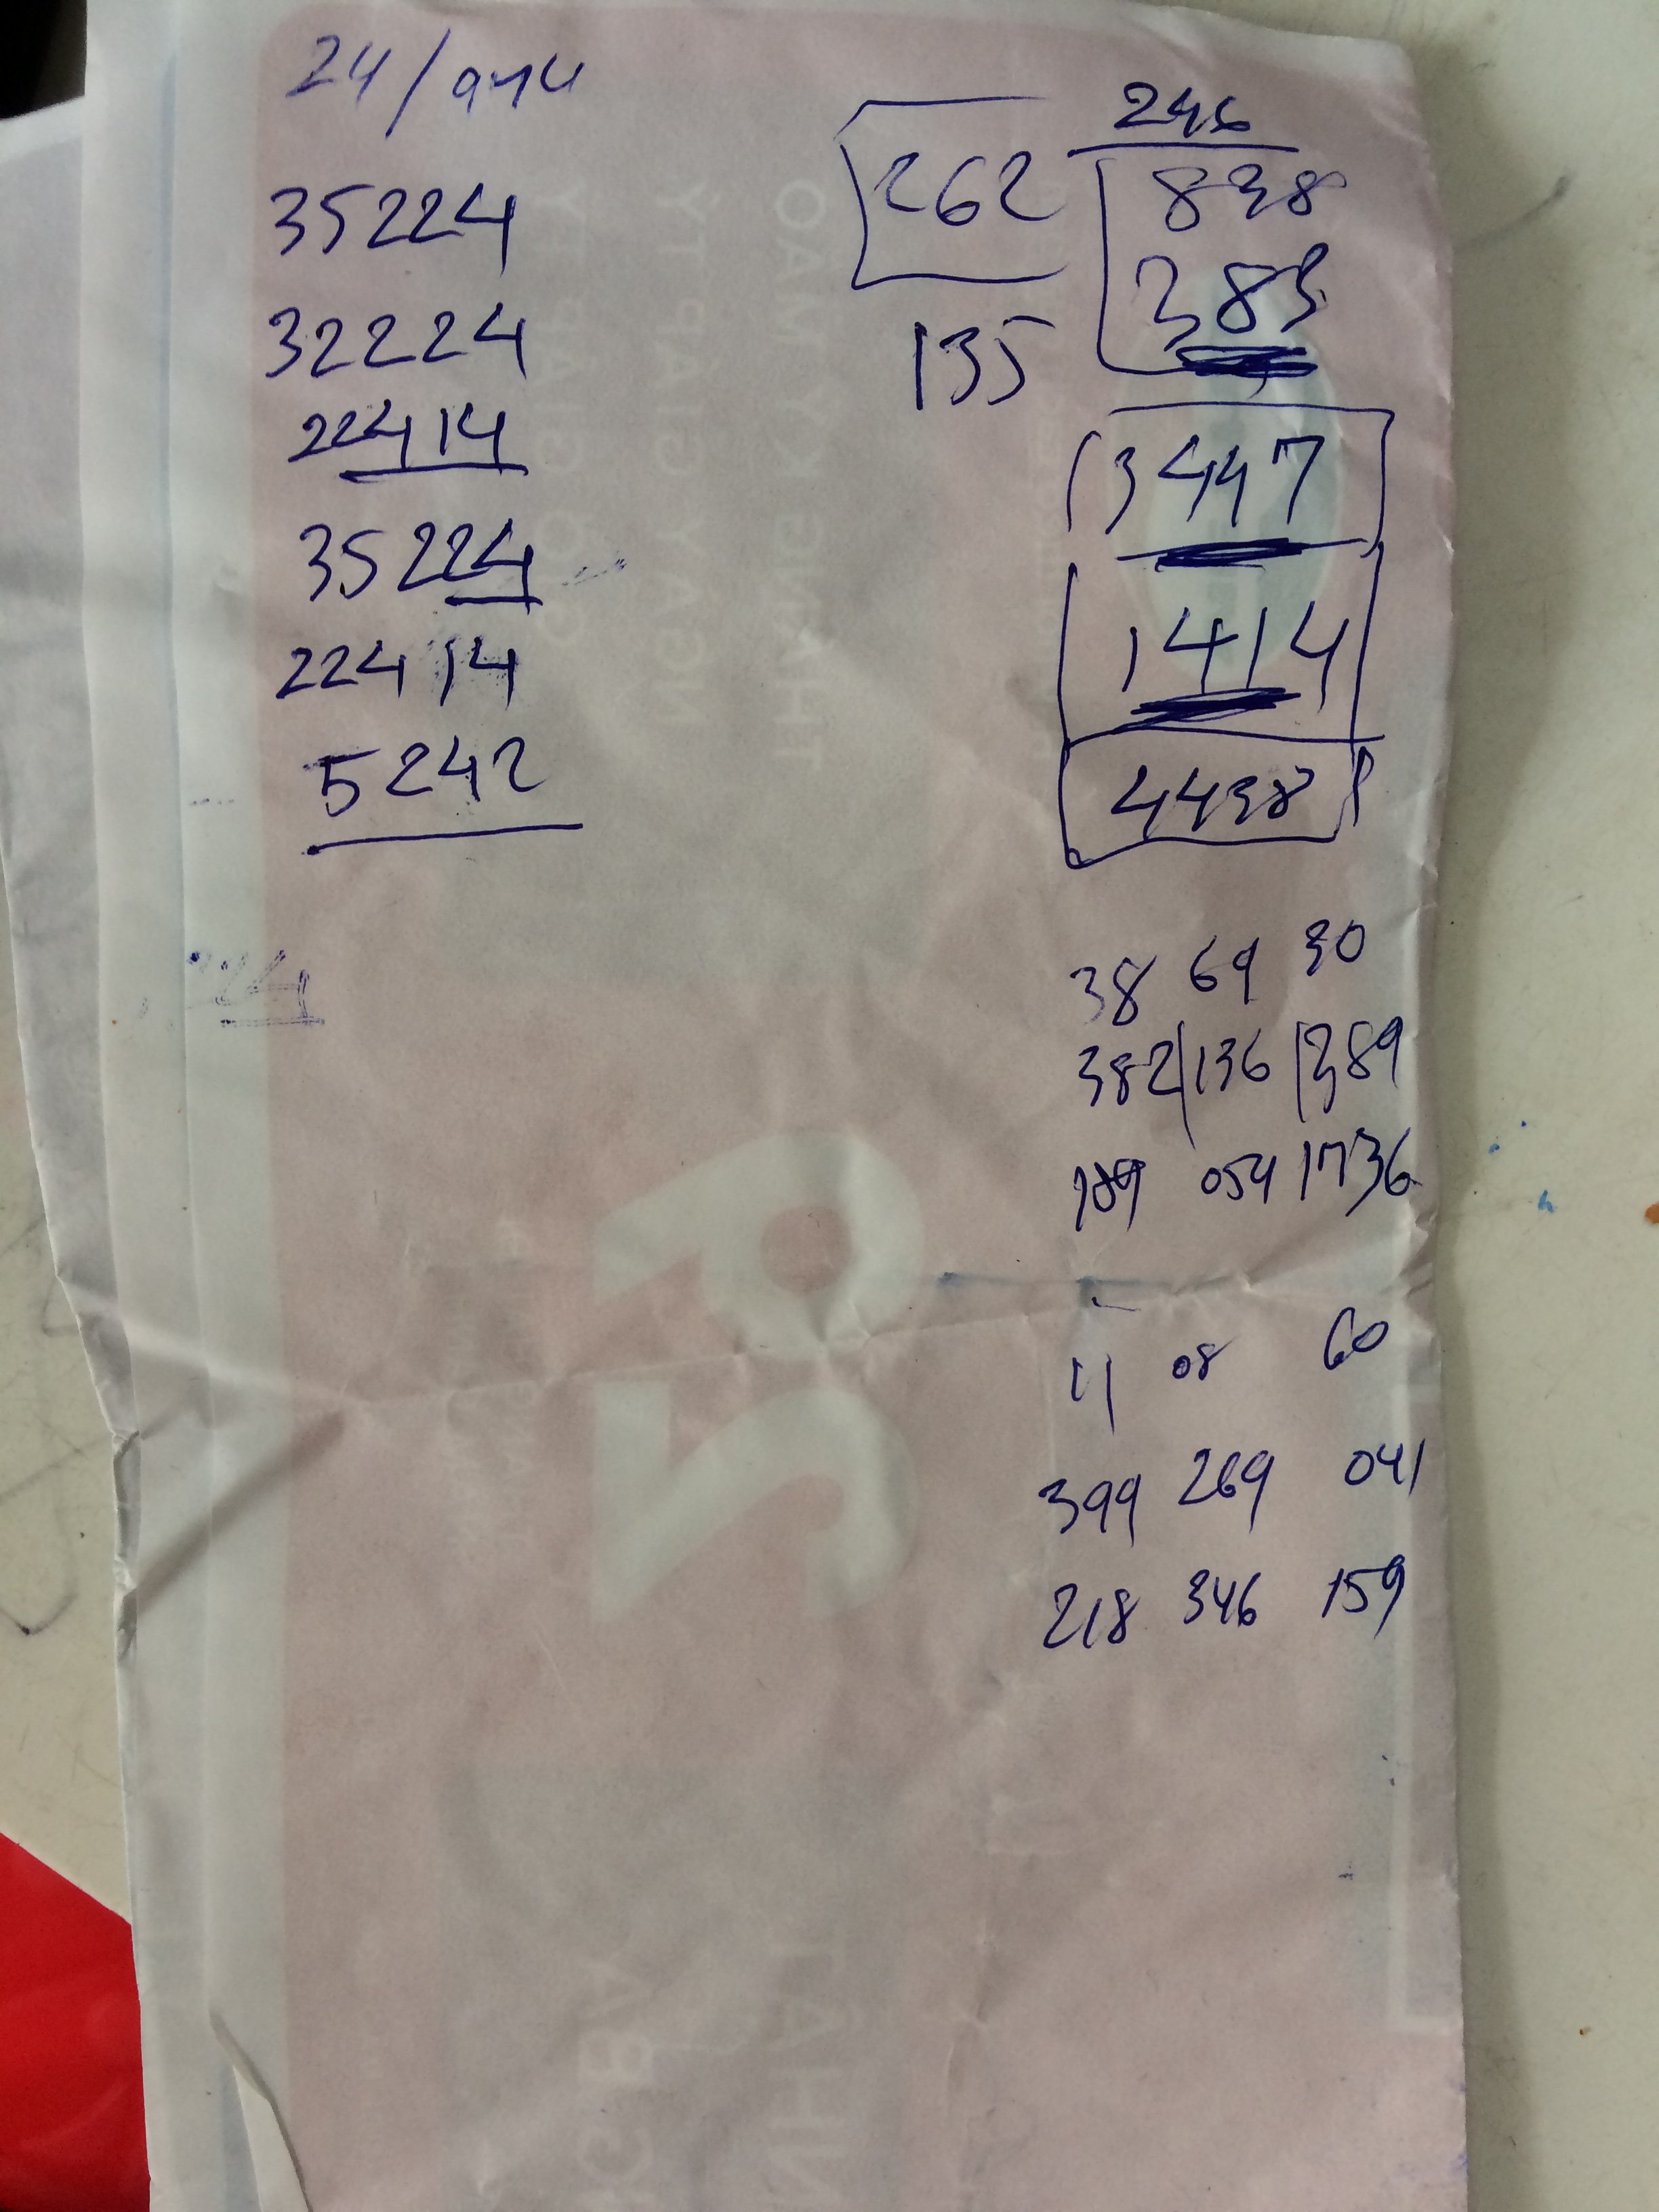 24/
35224
32224
22414
35224
22414
5242
246
262 838
383
135
3447
1414
4438
38 69 30
382/136/389
189 054 1736
11 08 60
399 269 041
218 346 159
24